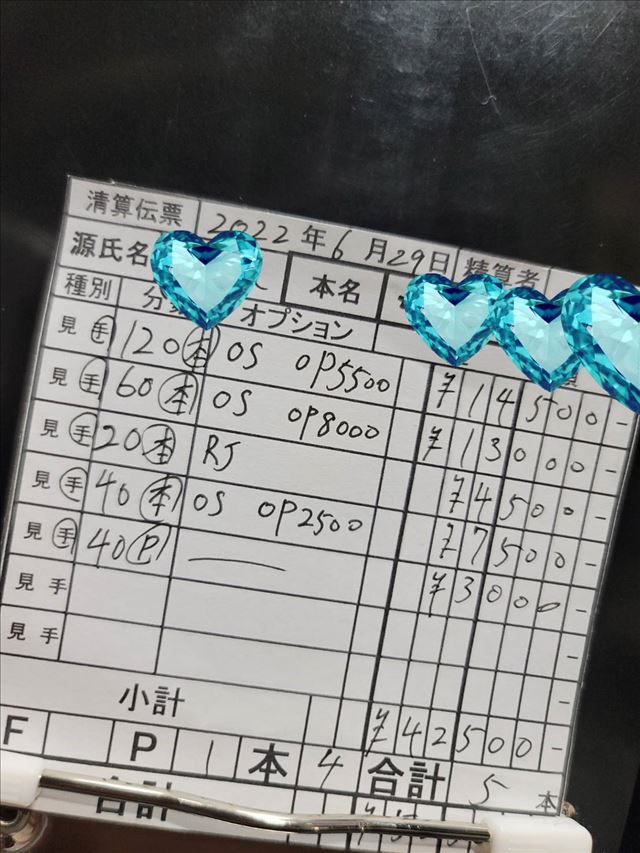 清算伝票 2022年6月29日 精算者
源氏名 本名
種別 オプション
見 手 120 本 OS OP5500 ¥14500-
見 手 60 本 OS OP8000 ¥13000-
見 手 20 本 RJ ¥4500-
見 手 40 本 OS OP2500 ¥7500-
見 手 40 P ¥3000-
見 手 -
見 手 -
小計 ¥42500-
F P 1 本 4 合計 5 本
合計